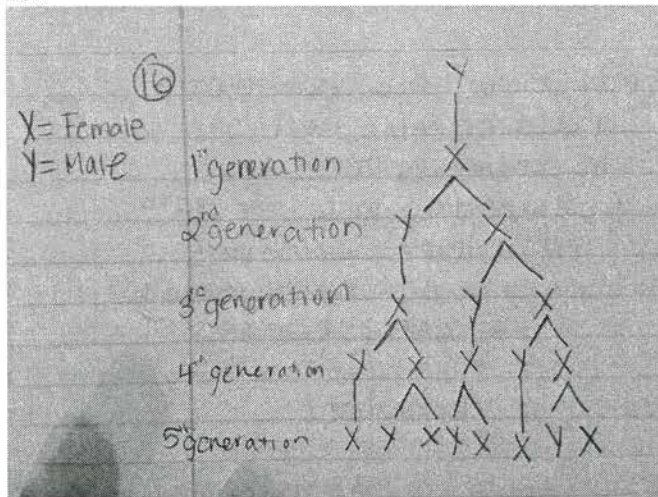 16
Y
X = Female
Y = Male
1st generation X
2nd generation Y X
3rd generation X Y X
4th generation Y X X Y X
5th generation X Y X Y X X Y X